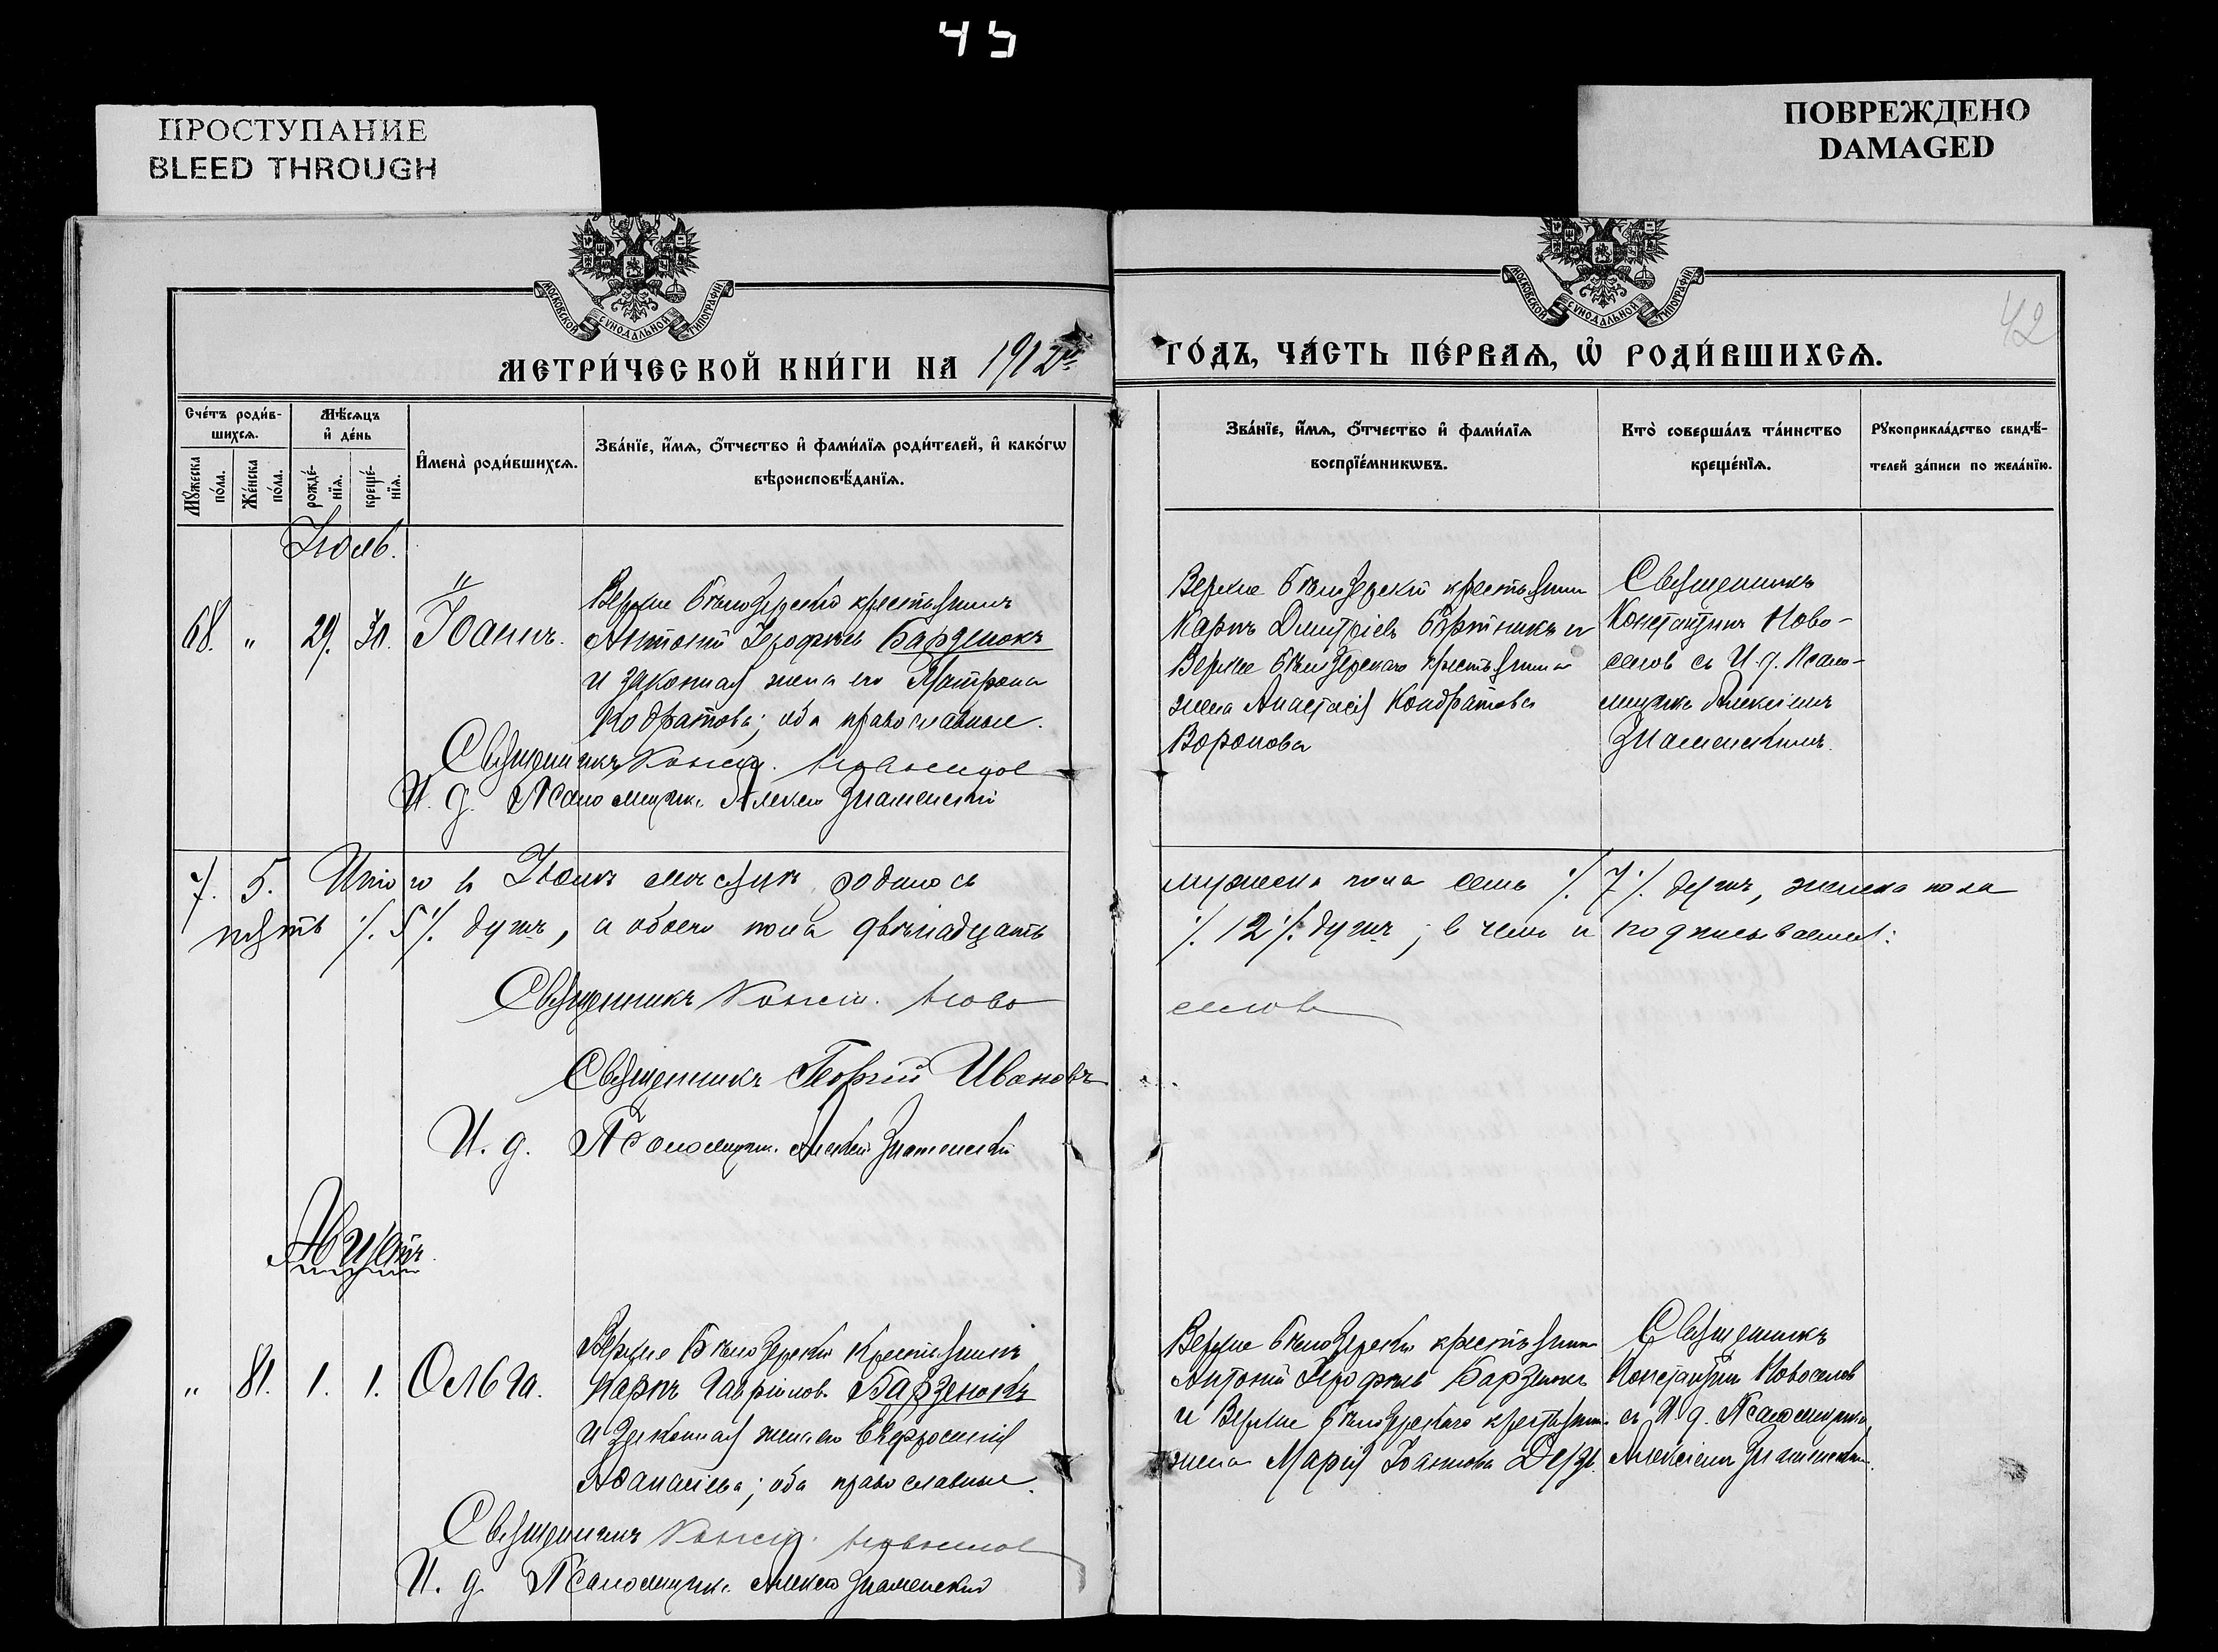 45
ПРОСТУПАНИЕ
BLEED THROUGH
ПОВРЕЖДЕНО
DAMAGED
МОСКОВСКОЙ СѴНОДАЛЬНОЙ ТИПОГРАФІИ
МОСКОВСКОЙ СѴНОДАЛЬНОЙ ТИПОГРАФІИ
42
МЕТРИ́ЧЕСКОЙ КНИ́ГИ НА 1912й
ГО́ДЪ, ЧА́СТЬ ПЕ́РВАѦ, Ѡ҆ РОДИ́ВШИХСѦ.
Сче́тъ роди́в-
шихсѧ.
Мꙋ́жеска по́ла.
Же́нска по́ла.
Мѣ́сѧцъ
и҆ де́нь
рожде́-
нїѧ.
креще́-
нїѧ.
И҆мена̀ роди́вшихсѧ.
Зва́нїе, и҆́мѧ, ѻ҆́тчество и҆ фами́лїѧ роди́телей, и҆ како́гѡ
вѣроисповѣ́данїѧ.
Зва́нїе, и҆́мѧ, ѻ҆́тчество и҆ фами́лїѧ
воспрїе́мникѡвъ.
Кто̀ соверша́лъ та́инство
креще́нїѧ.
Рꙋкоприкла́дство свидѣ́-
телей за́писи по жела́нїю.
Іюль.
68. " 29. 30. Іоаннъ.
Верхне Бѣлозерскій крестьянинъ
Антоній Ерофѣевъ Барзенокъ
и законная жена его Матрона
Кодратова; оба православные.
Священникъ Конст. Новоселов
И. д. Псаломщика Алексей Знаменскій
Верхне Бѣлозерскій крестьянин
Карпъ Димитріевъ Бортникъ и
Верхне Бѣлозерскаго крестьянина
жена Анастасія Кондратова
Воронова
Священникъ
Константинъ Ново-
селов съ И. д. Псало-
мщика Алексіемъ
Знаменскимъ.
7. 5. Итого въ Іюлѣ мѣсяцѣ родилось
мужеска пола семь ·/. 7 ·/. душъ, женска пола
пять ·/. 5 ·/. душъ, а обоего пола двѣнадцать
·/. 12 ·/. душъ; в чемъ и подписываемся:
Священникъ Конст. Ново
селов
Священникъ Георгій Ивановъ
И. д. Псаломщик. Алексей Знаменскій
Августъ.
" 81. 1. 1. Ольга.
Верхне Бѣлозерскій крестьянинъ
Карпъ Гавріиловъ Барзенокъ
и законная жена его Евфросинія
Аѳанасіева; оба православные.
Священникъ Конст. Новоселов
И. д. Псаломщика Алексей Знаменскій
Верхне Бѣлозерскій крестьянин
Антоній Ерофѣевъ Барзенокъ
и Верхне Бѣлозерскаго крестьянин.
жена Марія Іоаннова
Священникъ
Константинъ Новоселов
съ И. д. Псаломщика
Алексіемъ Знаменским.